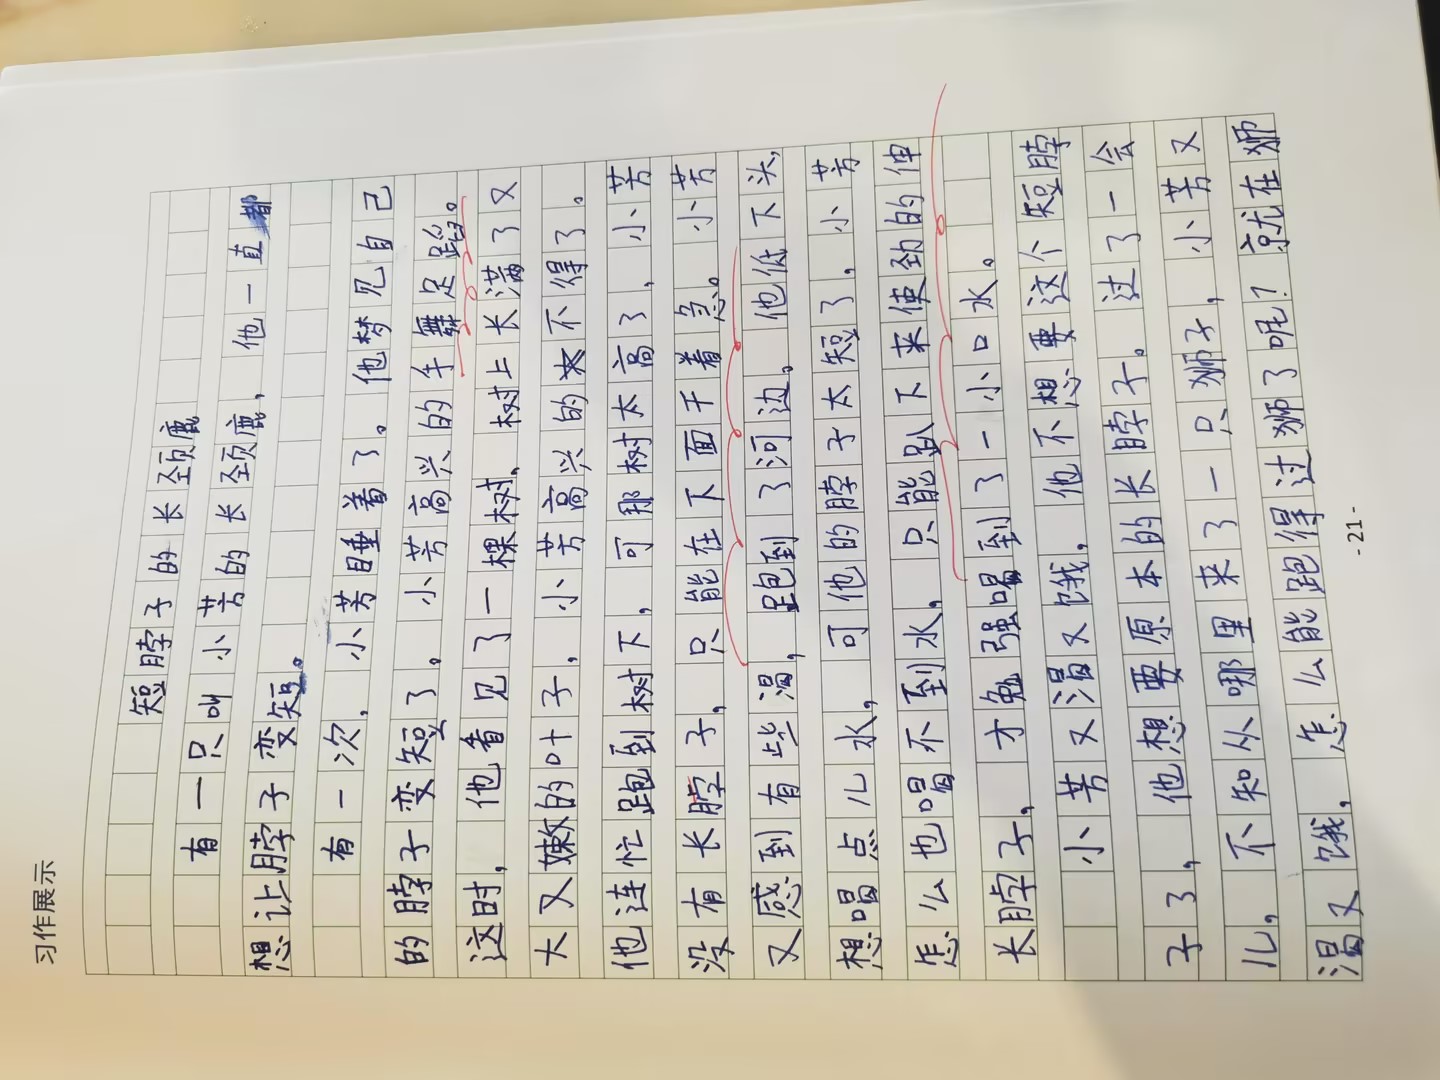 习作展示
短脖子的长颈鹿
有一只叫小芳的长颈鹿，他一直都
想让脖子变短。
有一次，小芳睡着了。他梦见自己
的脖子变短了。小芳高兴的手舞足蹈。
这时，他看见了一棵树，树上长满了又
大又嫩的叶子，小芳高兴的不得了。
他连忙跑到树下，可那树太高了，小芳
没有长脖子，只能在下面干着急。小芳
又感到有些渴，跑到了河边。他低下头，
想喝点儿水，可他的脖子太短了，小芳
怎么也喝不到水，只能趴下来使劲的伸
长脖子，才勉强喝到了一小口水。
小芳又渴又饿，他不想要这个短脖
子了，他想要原本的长脖子。过了一会
儿，不知从哪里来了一只狮子，小芳又
渴又饿，怎么能跑得过狮了呢？就在狮
- 21 -